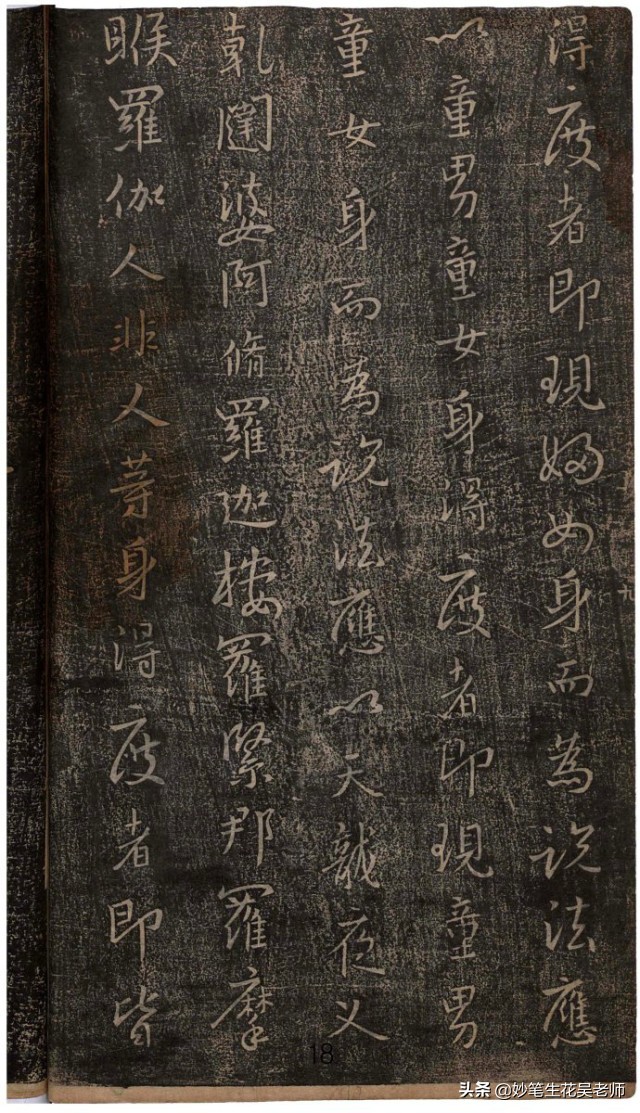 得度者即現婦女身而為說法應
以童男童女身得度者即現童男
童女身而為說法應以天龍夜叉
乾闥婆阿脩羅迦樓羅緊那羅摩
睺羅伽人非人等身得度者即皆
九
18
头条 @妙笔生花吴老师